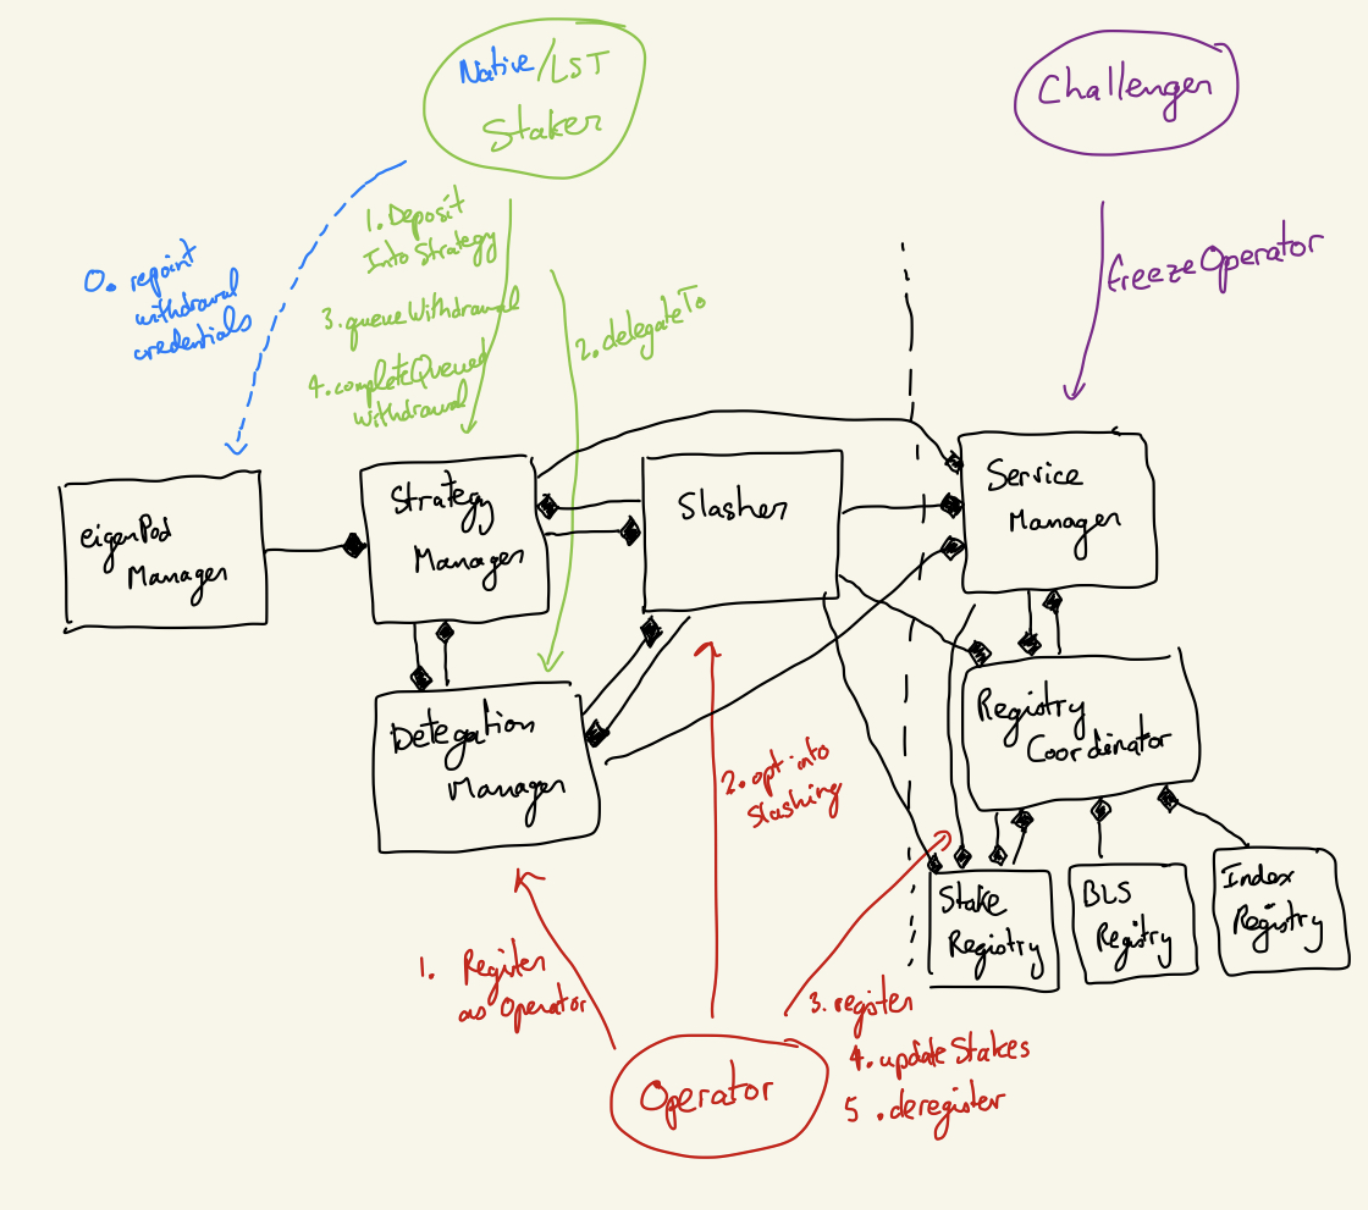 Native/LST
Staker
Challenger
0. repoint
withdrawal
credentials
1. Deposit
Into Strategy
3. queueWithdrawal
4. completeQueued
withdrawal
2. delegateTo
freezeOperator
eigenPod
Manager
Strategy
Manager
Slasher
Service
Manager
Delegation
Manager
Registry
Coordinator
2. opt into
slashing
Stake
Registry
BLS
Registry
Index
Registry
1. Register
as Operator
3. register
4. updateStakes
5. deregister
Operator